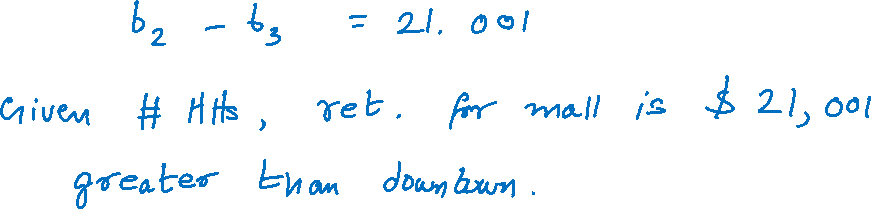 b₂ - b₃ = 21.001
Given # HHs, ret. for mall is $ 21,001
greater than downtown.